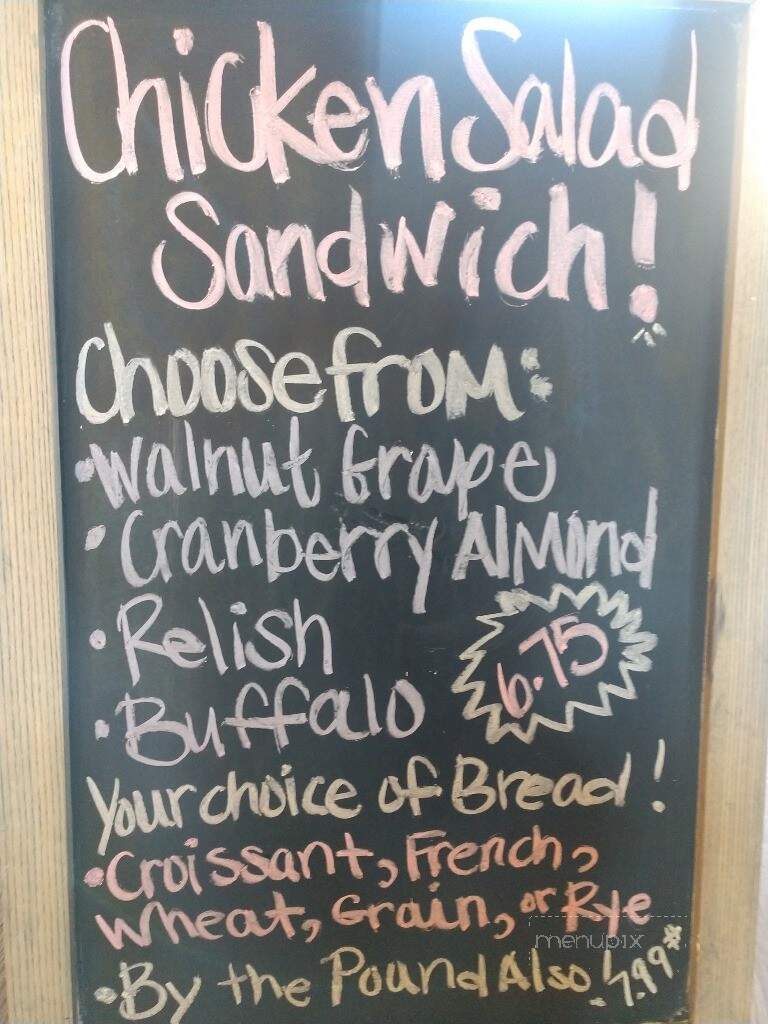 Chicken Salad
Sandwich!
Choose from:
• Walnut Grape
• Cranberry Almond
• Relish
6.75
• Buffalo
Your choice of Bread!
• Croissant, French,
Wheat, Grain, or Rye
menupix
• By the Pound Also! 7.99*